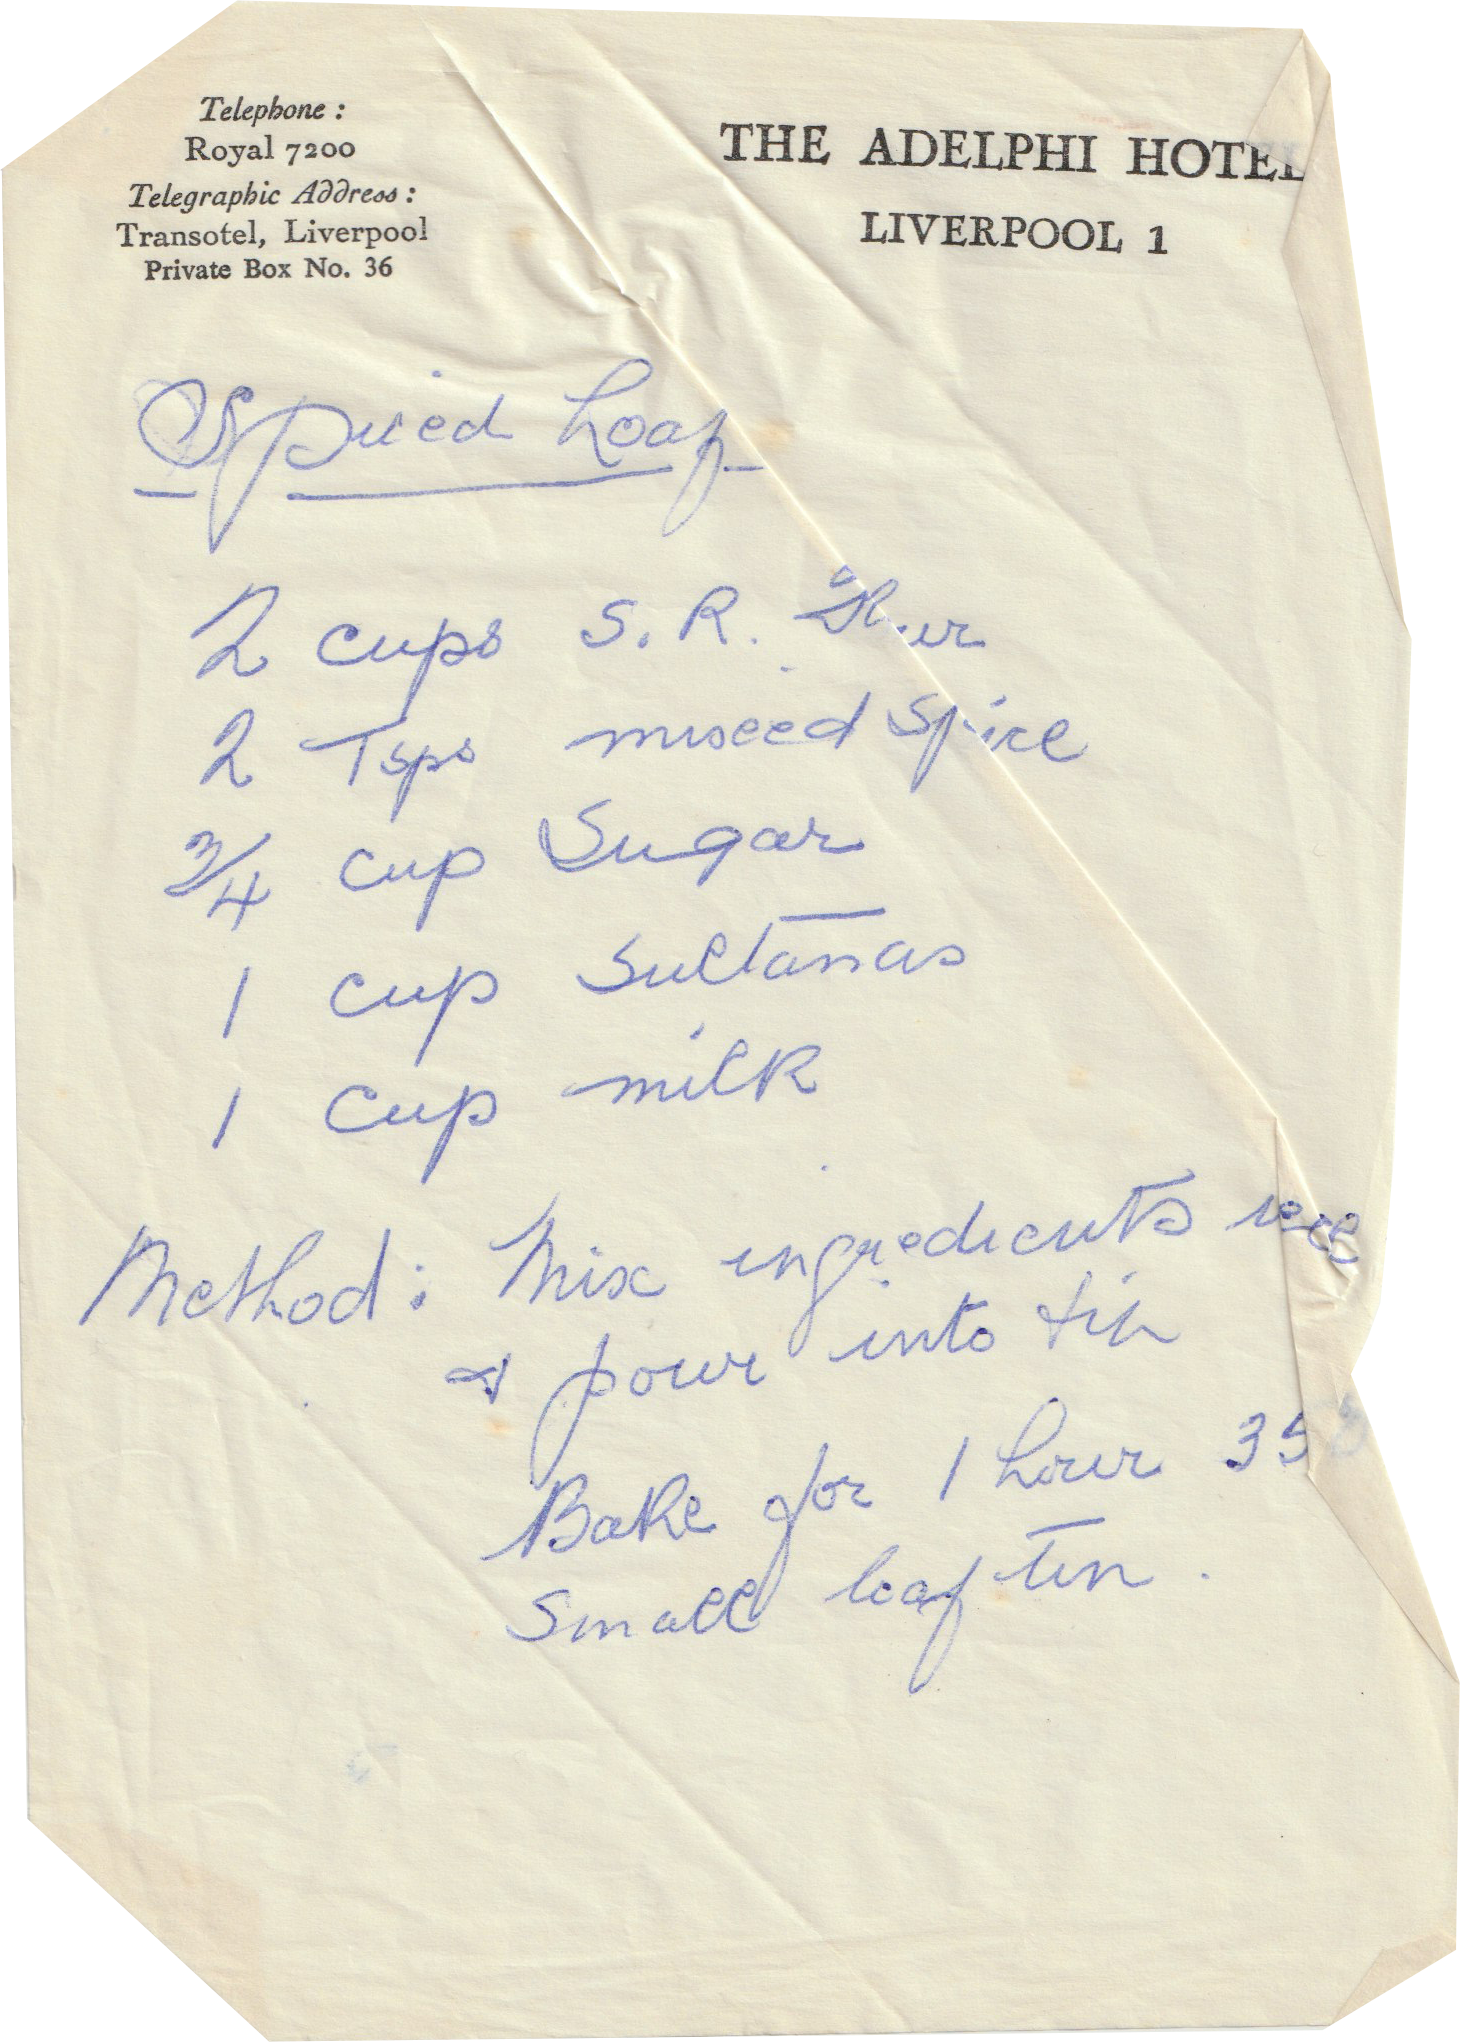 Telephone :
Royal 7200
Telegraphic Address :
Transotel, Liverpool
Private Box No. 36
THE ADELPHI HOTEL
LIVERPOOL 1
Spiced Loaf
2 cups S. R. Flour
2 Tsps mixed spice
3/4 cup Sugar
1 cup Sultanas
1 cup milk
Method : Mix ingredients well
& pour into tin
Bake for 1 hour 350
Small loaf tin .